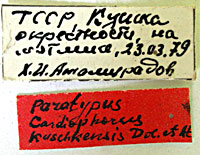 ТССР, Кушка
окрестности, на
23.03.79
Х.И. Атамурадов
Paratypus
Cardiophorus
kuschkensis Dol. et At.